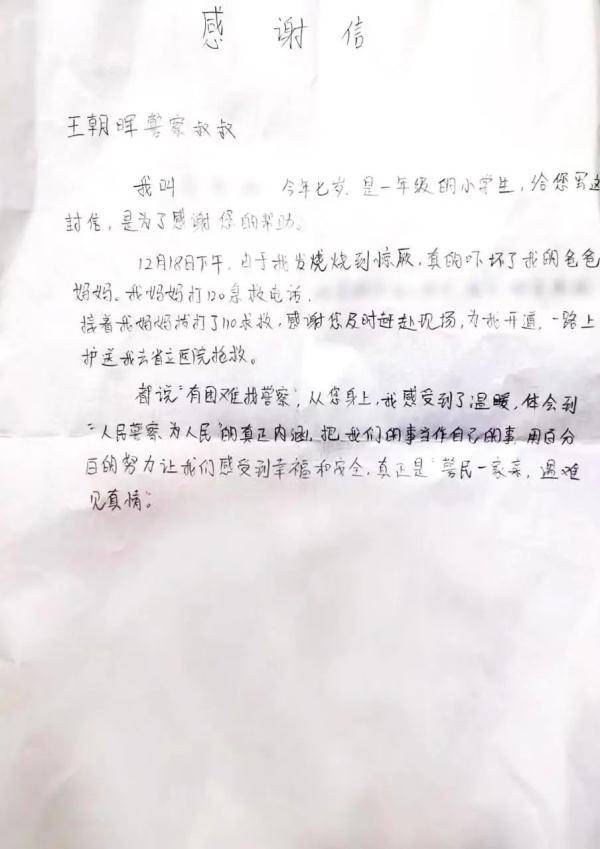 感谢信
王朝晖警察叔叔
我叫 今年七岁，是一年级的小学生，给您写这
封信，是为了感谢您的帮助。
12月18日下午，由于我发烧烧到惊厥，真的吓坏了我的爸爸
妈妈。我妈妈打120急救电话，
接着我妈妈拨打了110求救，感谢您及时赶赴现场，为我开道，一路上
护送我去省立医院抢救。
都说"有困难找警察"，从您身上，我感受到了温暖，体会到
"人民警察为人民"的真正内涵，把我们的事当作自己的事，用百分
百的努力让我们感受到幸福和安全，真正是"警民一家亲，遇难
见真情"。